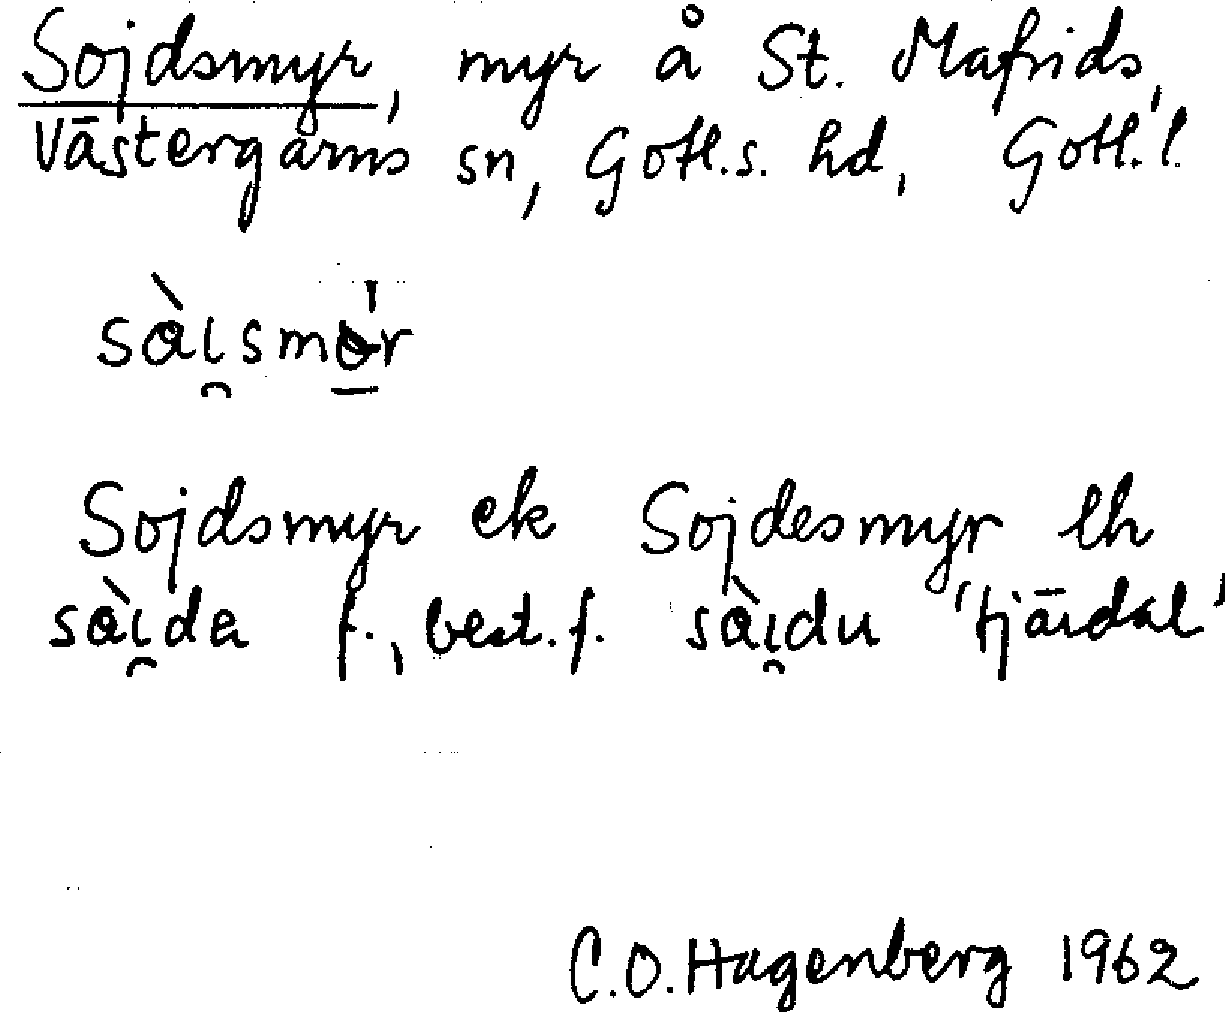 Sojdsmyr, myr å St. Mafrids,
Västergarns sn, Gotl.s. hd, Gotl.l.
sàı̯smo̲r
Sojdsmyr ek Sojdesmyr lh
sàı̯da f., best.f. sàı̯du 'tjärdal'
C.O.Hagenberg 1962